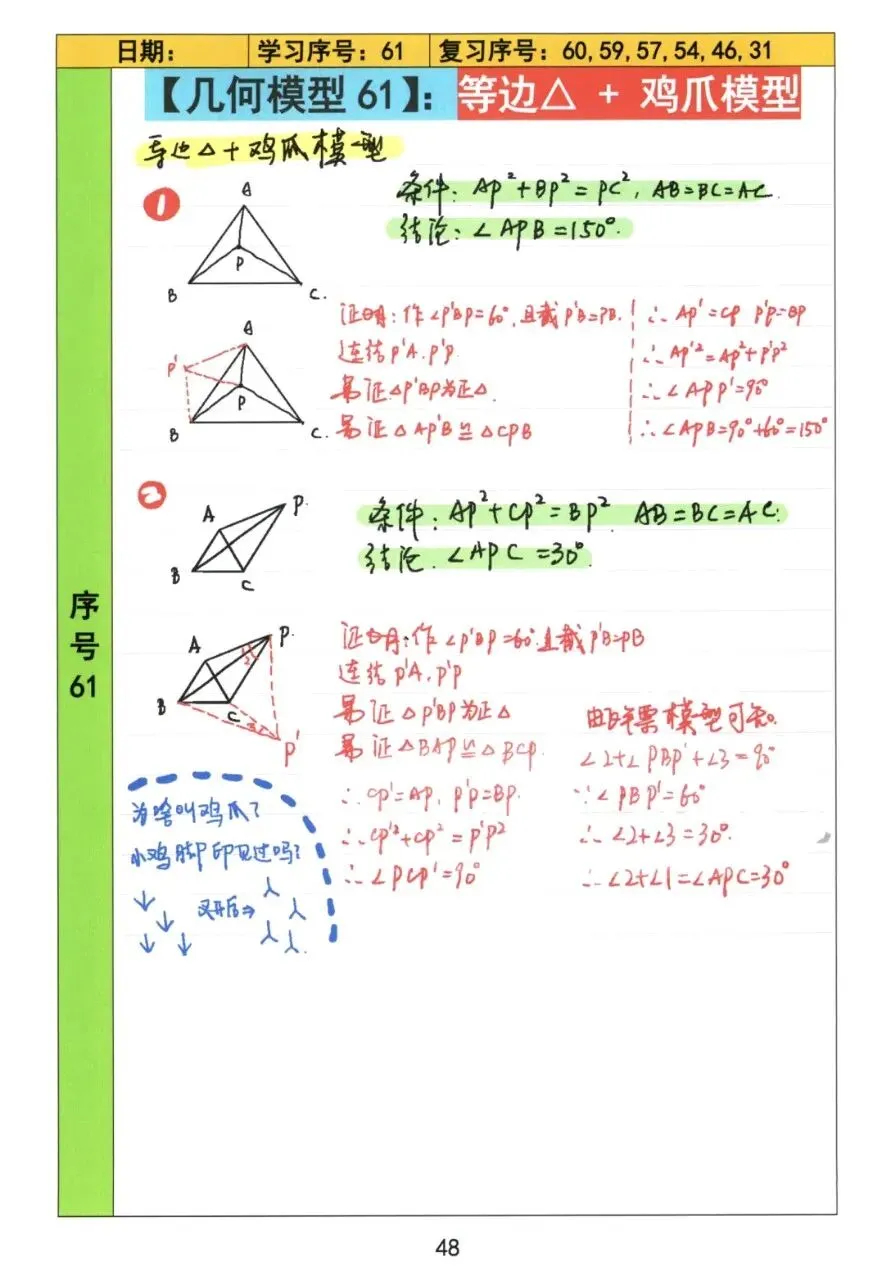 日期： 学习序号：61 复习序号：60,59,57,54,46,31
【几何模型 61】：等边△ + 鸡爪模型
等边△+鸡爪模型
1
条件：AP²+BP²=PC²，AB=BC=AC.
结论：∠APB=150°.
A
P
B
C.
A
P'
P
B
C.
证明：作∠P'BP=60°,且截P'B=PB.
连结P'A，P'P.
易证△P'BP为正△.
易证△AP'B≌△CPB
∴AP'=CP P'P=BP
∴AP'²=AP²+P'P²
∴∠APP'=90°
∴∠APB=90°+60°=150°
2
条件：AP²+CP²=BP². AB=BC=AC.
结论.∠APC=30°.
A
P.
B
C
A
P.
B
C
P'
1
2
3
证明：作∠P'BP=60°且截P'B=PB
连结P'A，P'P
易证△P'BP为正△
易证△BAP≌△BCP.
∴CP'=AP，P'P=BP.
∴CP'²+CP²=P'P²
∴∠PCP'=90°
模型可知。
∠2+∠PBP'+∠3=90°
∵∠PBP'=60°
∴∠2+∠3=30°.
∴∠2+∠1=∠APC=30°
为啥叫鸡爪？
小鸡脚印见过吗？
叉开后⇒
序号61
48